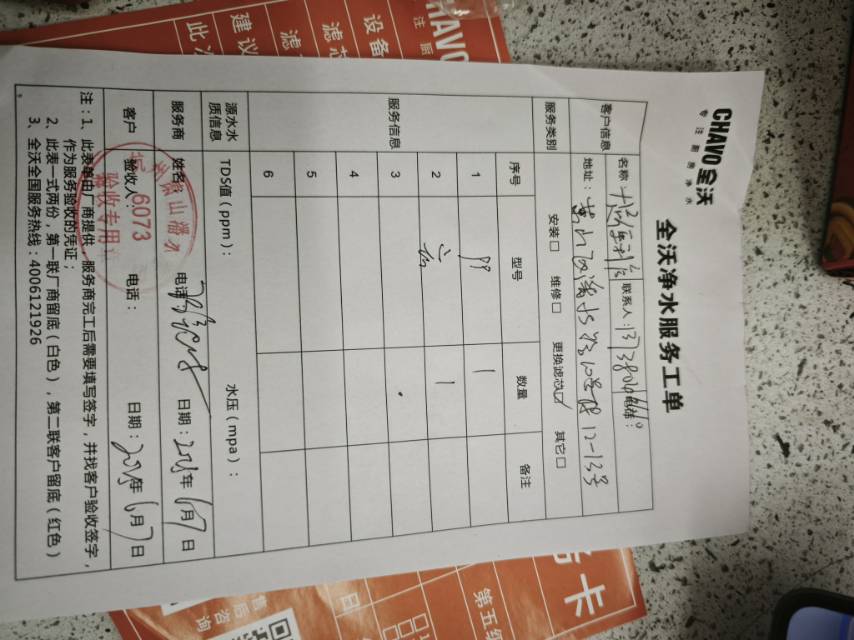 CHAVO全沃
专注厨房净水
全沃净水服务工单
客户信息
名称:
联系人:
电话:
地址:
12-13号
服务类别
安装□ 维修□ 更换滤芯☑ 其它□
服务信息
序号 型号 数量 备注
1 1
2 1
3
4
5
6
源水水质信息
TDS值(ppm): 水压(mpa):
服务商 姓名: 电话: 日期: 2025年6月7日
客户 验收人: 电话: 日期: 2025年6月7日
6073
验收专用
注:1、此表单由厂商提供,服务商完工后需要填写签字,并找客户验收签字,
作为服务验收的凭证;
2、此表一式两份,第一联厂商留底(白色),第二联客户留底(红色)
3、全沃全国服务热线:4006121926
CHAVO
设备
滤芯
滤
建议
此次
卡
第五级
售后咨询
日